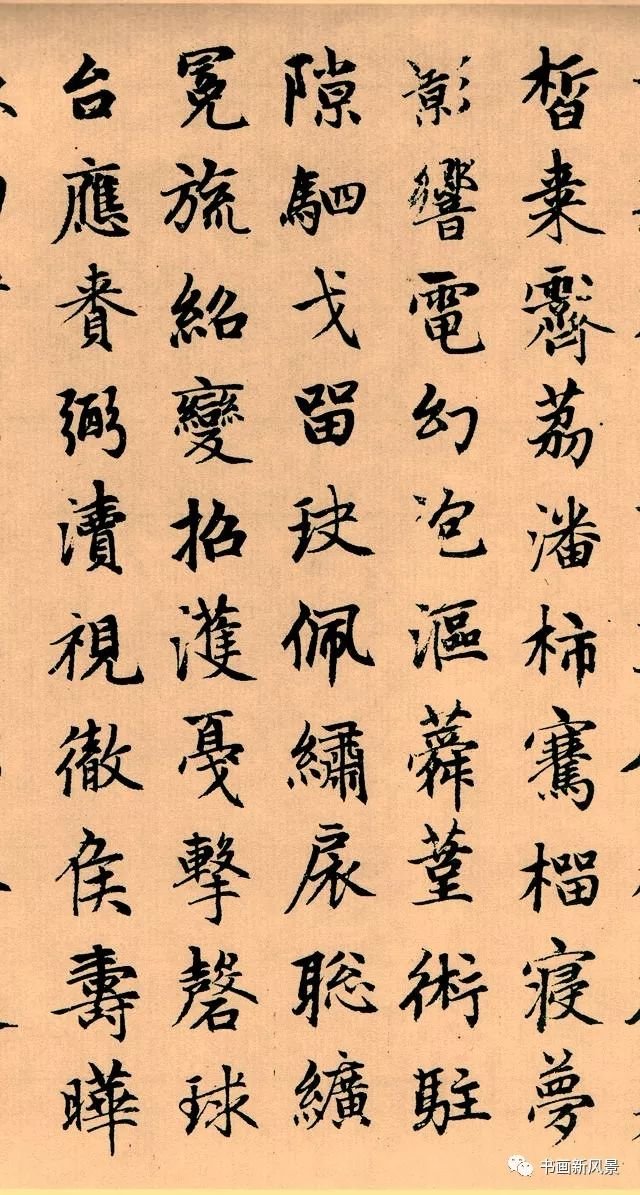 晳棗霽荔潘柿騫榴寢夢
影響電幻泡漚蕣菫術駐
隙駟戈留玦佩繡扆聡纊
冕旒紹變招濩戛擊磬球
台應賚弼瀆視徹侯壽曄
书画新风景